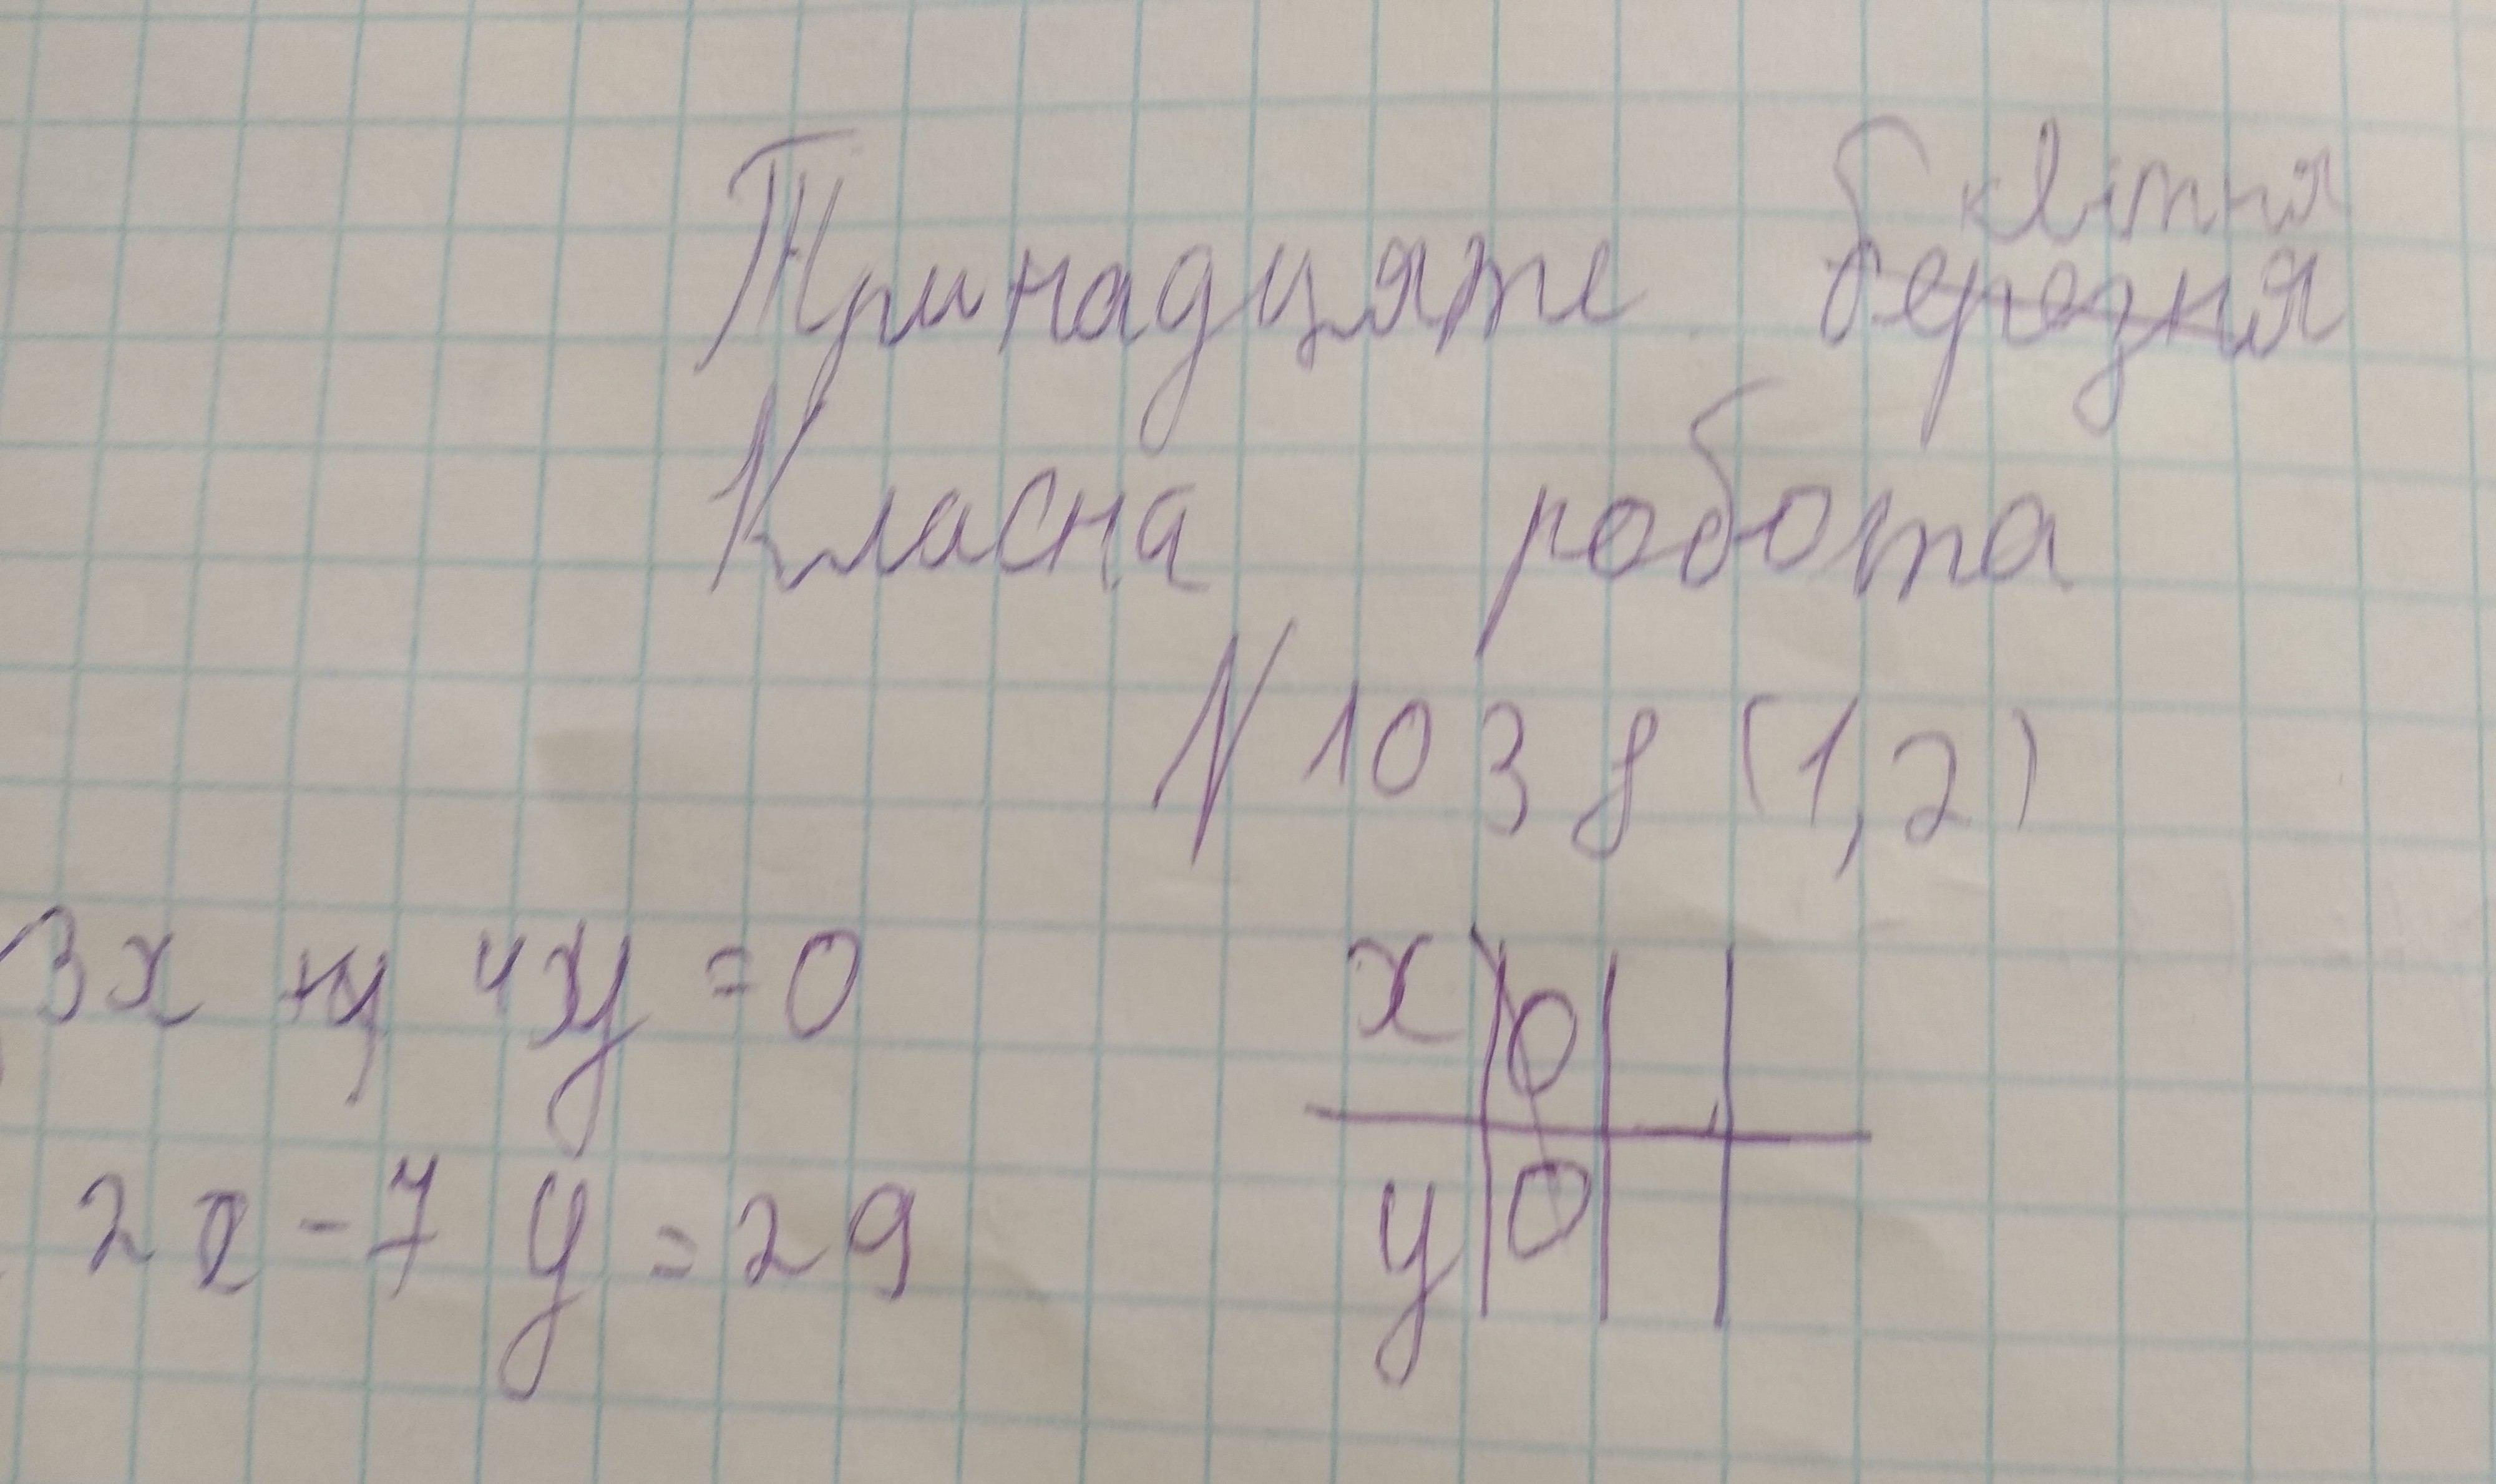 квітня
Тринадцяте березня
Класна робота
N 1038 (1,2)
3x + 4y = 0
2x - 7y = 29
x 0
y 0